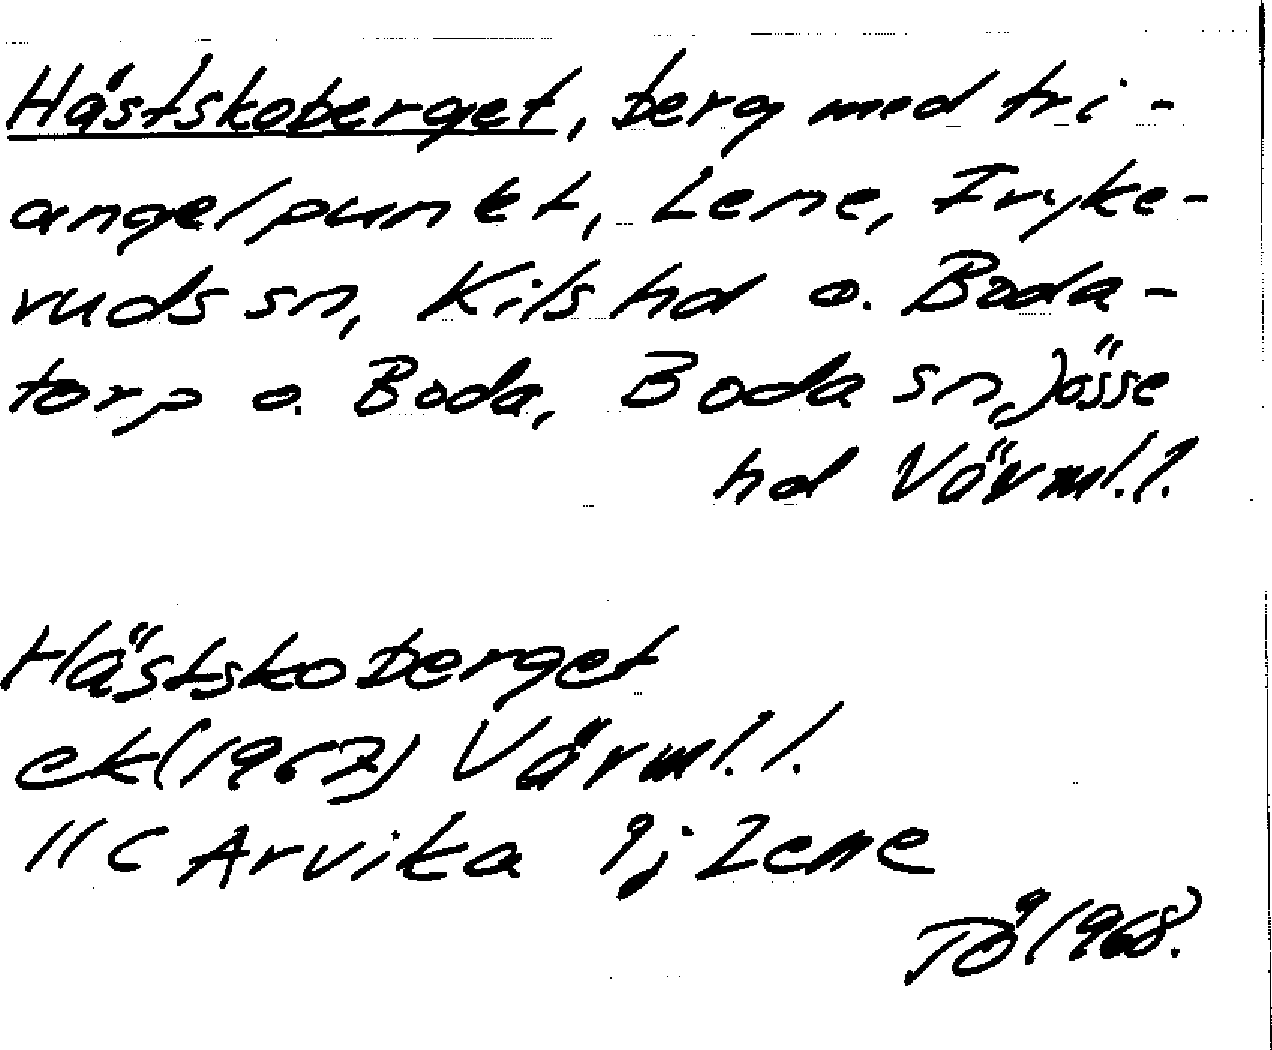 Hästskoberget, berg med tri-
angelpunkt, Lene, Fryke-
ruds sn, Kils hd o. Boda-
torp o. Boda, Boda sn, Jösse
hd Värml.l.
Hästskoberget
ek (1967) Värml.l.
11C Arvika 9j Lene
TÅ 1968.